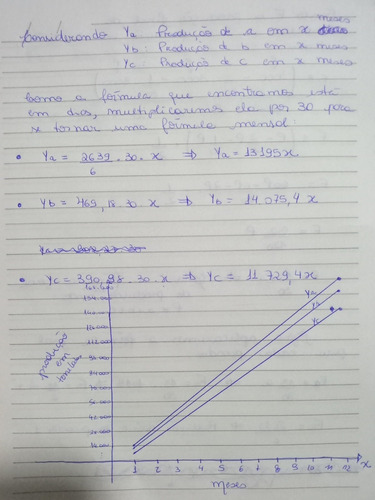 Considerando Ya Produção de a em x meses
Yb: Produção de b em x meses
Yc Produção de c em x meses
Como a fórmula que encontramos está
em dias, multiplicaremos ela por 30 para
se tornar uma fórmula mensal.
• Ya = 2639 . 30 . x ⇒ Ya = 13195x
6
• Yb = 469,18 30 . x ⇒ Yb = 14.075,4 x
• Yc = 390,98 . 30 . x ⇒ Yc = 11 729,4x
154.000
140.000
126.000
112.000
98.000
84.000
70.000
56.000
42.000
28.000
14.000
produção
em
toneladas
Ya
Yb
Yc
1 2 3 4 5 6 7 8 9 10 11 12 x
Meses